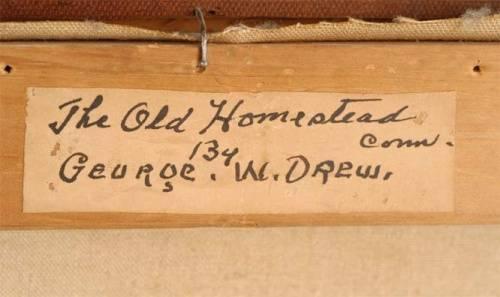 The Old Homestead
Conn.
134
George. W. Drew.